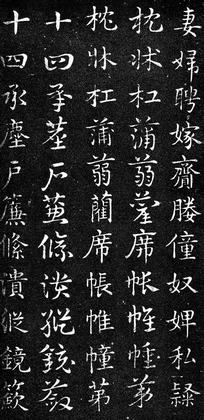 妻婦聘嫁齎媵僮奴婢私隸
枕牀杠蒲蒻藺席帳帷幢第
枕牀杠蒲蒻藺席帳帷幢第
十四承塵戶薕絛潰縱鏡籢
十四承塵戶薕絛潰縱鏡籢